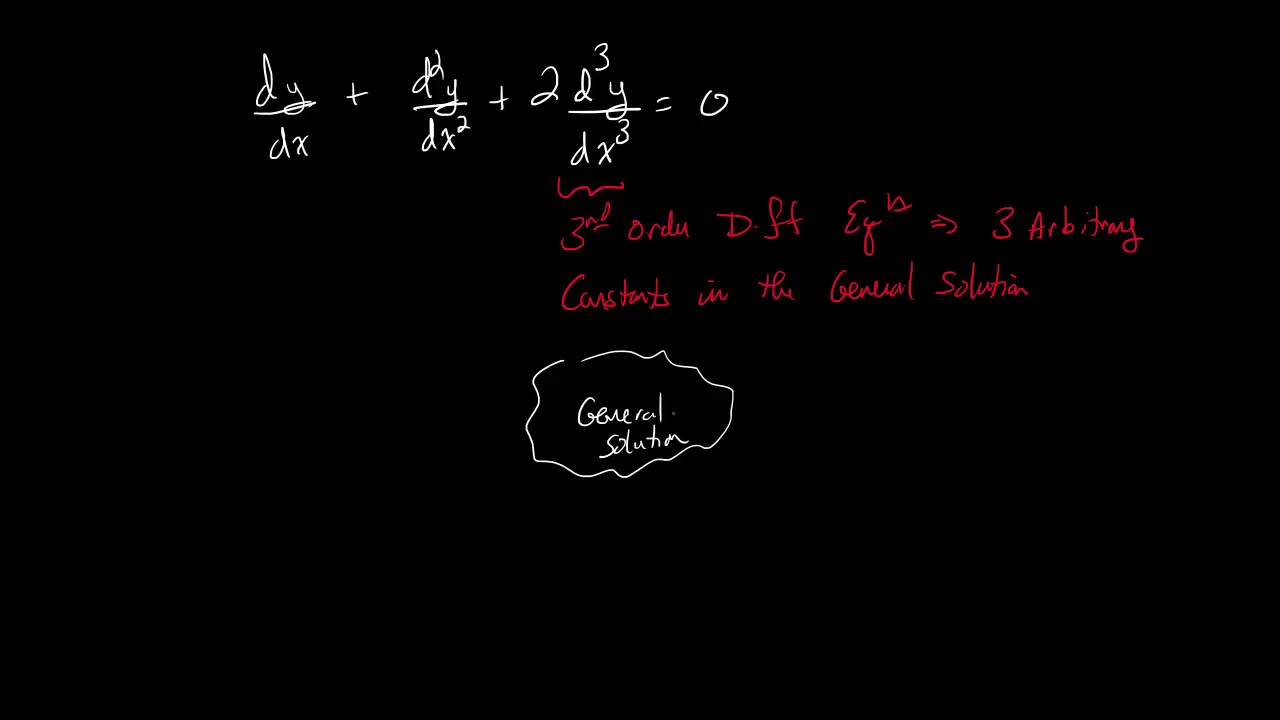 dy/dx + d²y/dx² + 2 d³y/dx³ = 0
3rd order Diff Eqn ⇒ 3 Arbitrary
Constants in the General Solution
General
Solution